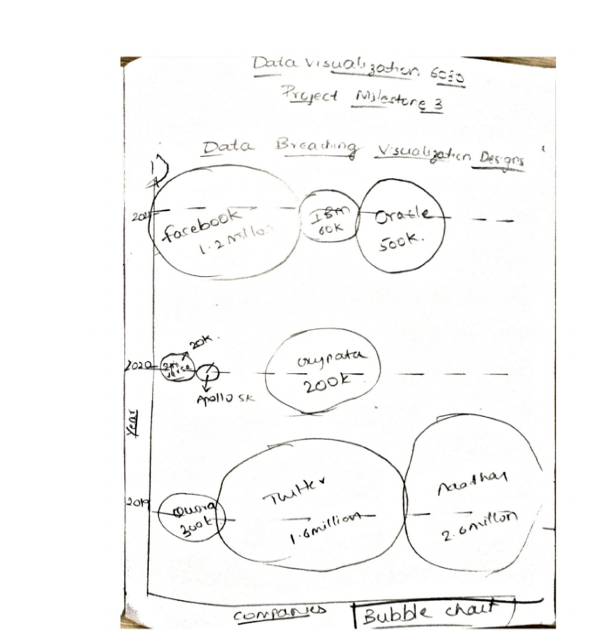 Data Visualization
Project Milestone 3
Data Breaching Visualization Designs
1)
2021
facebook
1.2 Millon
IBM
60K
Oracle
500K.
2020
20K.
Apollo 5K
200K
Year
2019
Quora
300K
Twitter
1.6million
Aadhar
2.6millon
companies
Bubble chart